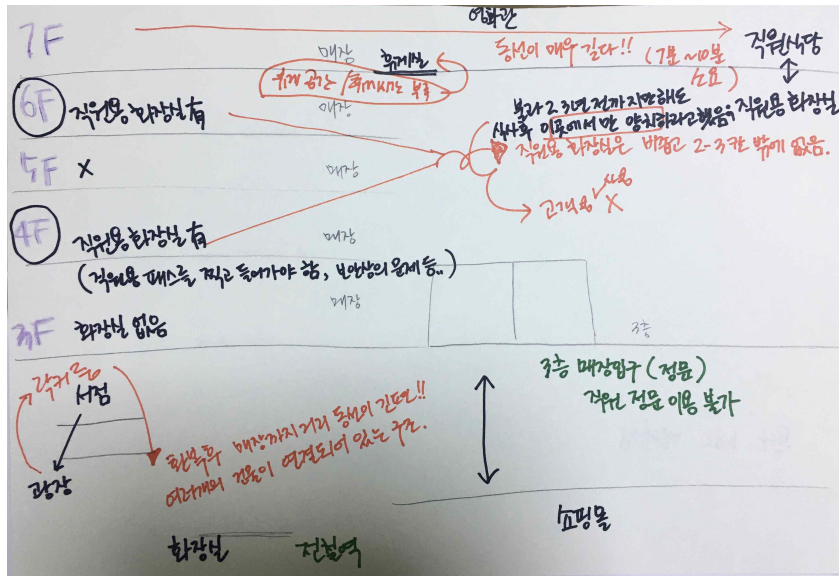 영화관
7F
매장
휴게실
동선이 매우 길다!! (7분~10분
소요)
직원식당
휴게 공간
부족
6F 직원용 화장실 有
매장
불과 2.3년 전까지만해도
식사후 이곳에서만 양치하라고했음; 직원용 화장실
직원용 화장실은 비좁고 2-3칸 밖에 없음.
5F X
매장
고객용 사용
X
4F 직원용 화장실 有
매장
(직원용 패스를 찍고 들어가야 함, 보안상의 문제 등..)
매장
3F 화장실 없음
3층
3층 매장입구 (정문)
직원 정문 이용 불가
락커룸
서점
광장
환복후 매장까지 거리 동선이 긴편!!
여러개의 건물이 연결되어 있는 구조.
쇼핑몰
화장실
전철역